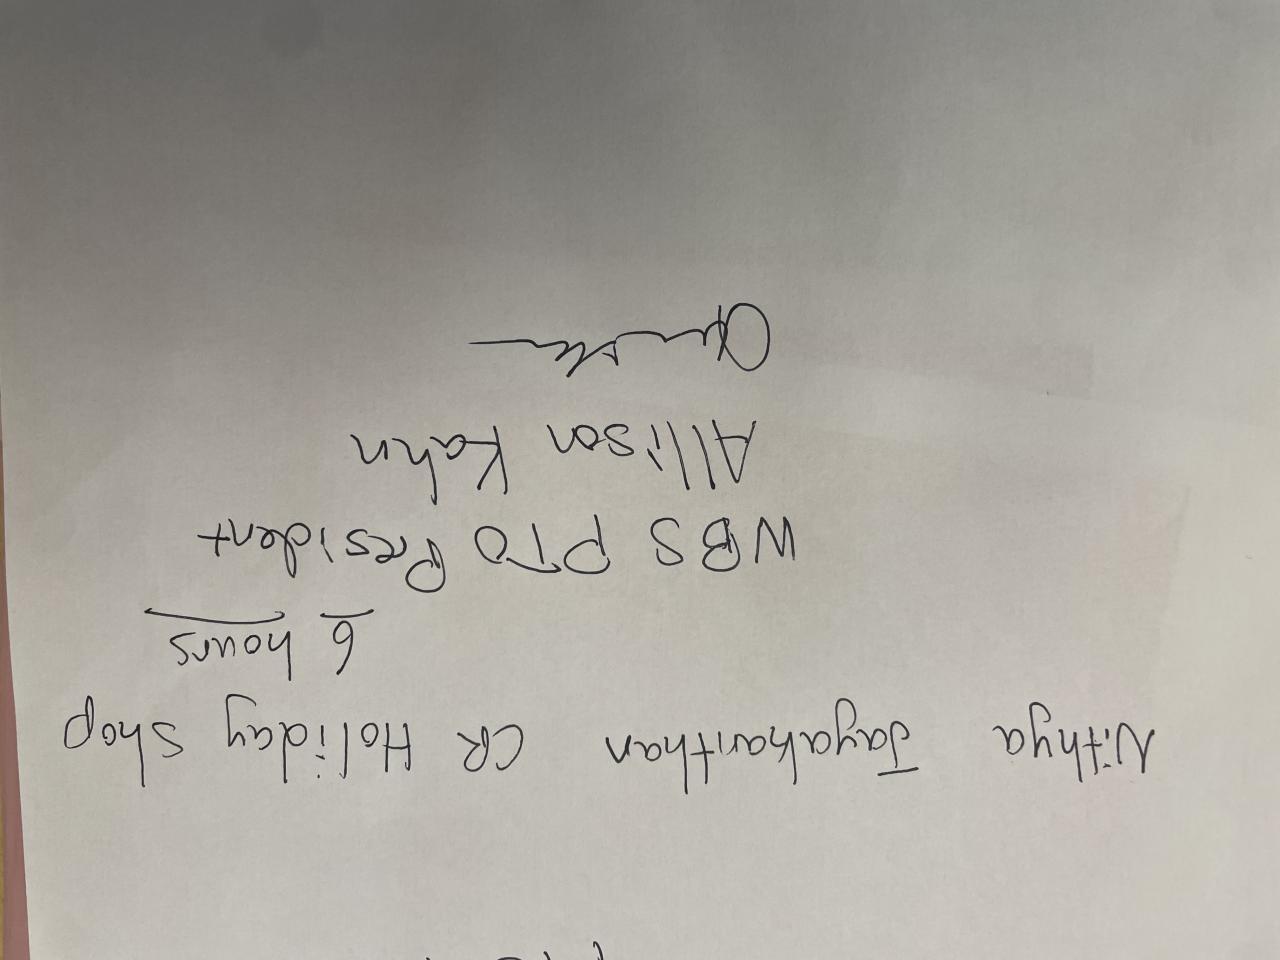 Nithya Jayahanthan CR Holiday Shop
6 hours
WBS PTO President
Allison Kahn